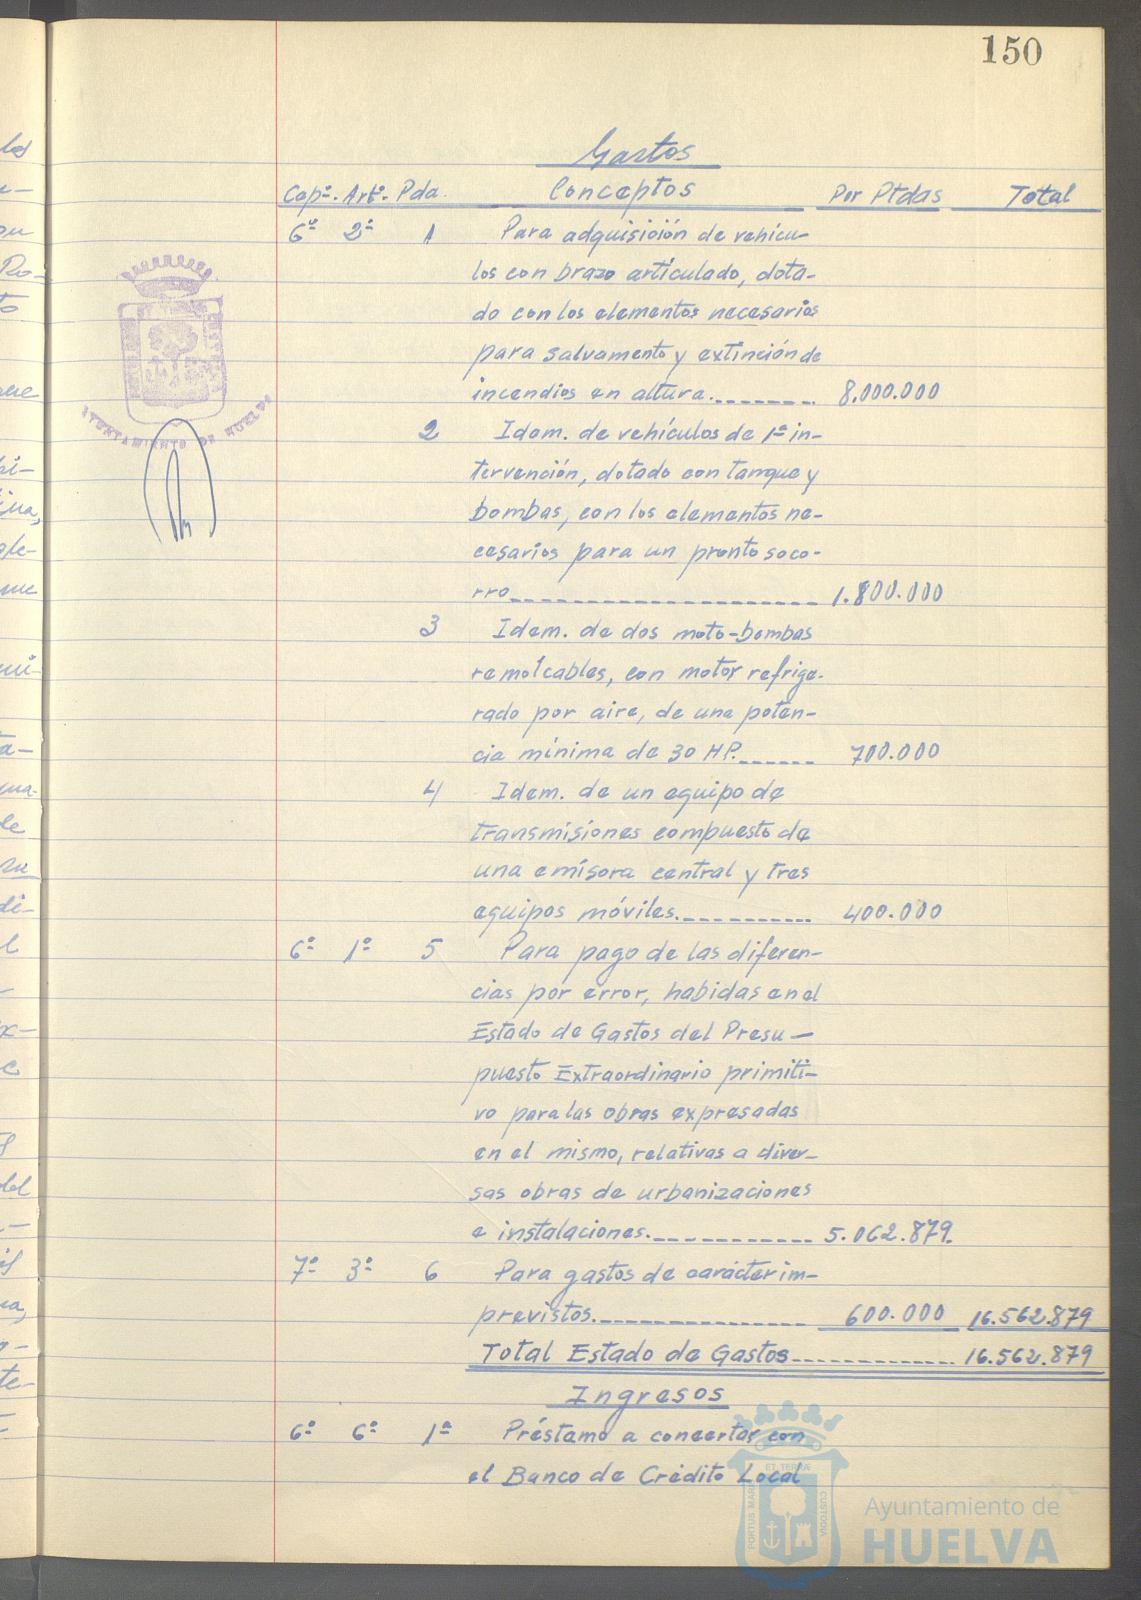 150
Gastos
Capº. Artº. Pda. Conceptos Por Ptdas Total
6º 2º 1 Para adquisición de vehícu-
los con brazo articulado, dota-
do con los elementos necesarios
para salvamento y extinción de
incendios en altura. 8.000.000
2 Idem. de vehículos de 1ª in-
tervención, dotado con tanque y
bombas, con los elementos ne-
cesarios para un pronto soco-
rro 1.800.000
3 Idem. de dos moto-bombas
remolcables, con motor refrige-
rado por aire, de una poten-
cia mínima de 30 HP. 700.000
4 Idem. de un equipo de
transmisiones compuesto de
una emisora central y tres
equipos móviles. 400.000
6º 1º 5 Para pago de las diferen-
cias por error, habidas en el
Estado de Gastos del Presu-
puesto Extraordinario primiti-
vo para las obras expresadas
en el mismo, relativas a diver-
sas obras de urbanizaciones
e instalaciones. 5.062.879.
7º 3º 6 Para gastos de carácter im-
previstos. 600.000 16.562.879
Total Estado de Gastos 16.562.879
Ingresos
6º 6º 1ª Préstamo a concertar con
el Banco de Crédito Local
AYUNTAMIENTO DE HUELVA
PORTUS MARIS ET TERRÆ CUSTODIA
Ayuntamiento de
HUELVA